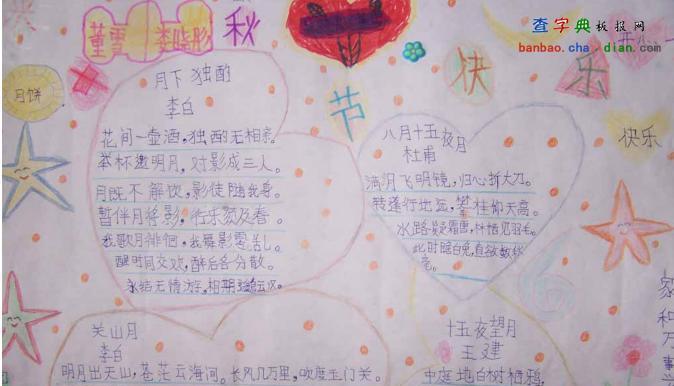 查字典板报网
banbao.cha.dian.com
董雪 娄晓彤
秋
节
快
乐
月饼
快乐
月下独酌
李白
花间一壶酒，独酌无相亲。
举杯邀明月，对影成三人。
月既不解饮，影徒随我身。
暂伴月将影，行乐须及春。
我歌月徘徊，我舞影零乱。
醒时同交欢，醉后各分散。
永结无情游，相期邈云汉。
八月十五夜月
杜甫
满月飞明镜，归心折大刀。
转蓬行地远，攀桂仰天高。
水路疑霜雪，林栖见羽毛。
此时瞻白兔，直欲数秋
毫。
关山月
李白
明月出天山，苍茫云海间。长风几万里，吹度玉门关。
十五夜望月
王建
中庭地白树栖鸦
家
和
万
事